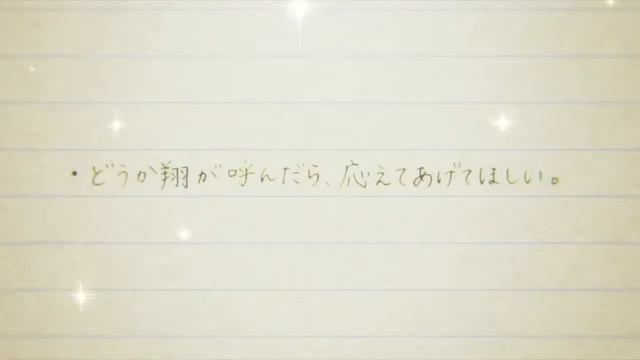 ・どうか翔が呼んだら、応えてあげてほしい。